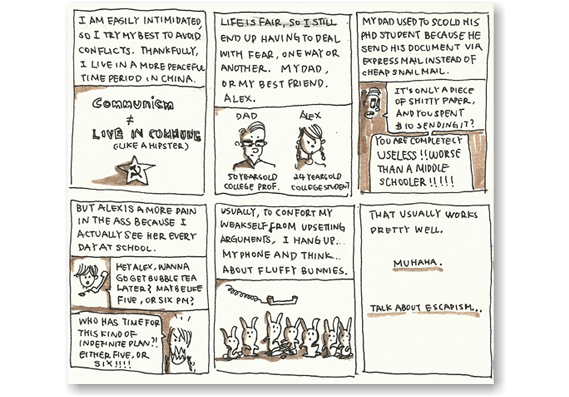 I AM EASILY INTIMIDATED,
SO I TRY MY BEST TO AVOID
CONFLICTS. THANKFULLY,
I LIVE IN A MORE PEACEFUL
TIME PERIOD IN CHINA.
COMMUNISM
≠
LIVE IN COMMUNE
(LIKE A HIPSTER)
LIFE IS FAIR, SO I STILL
END UP HAVING TO DEAL
WITH FEAR, ONE WAY OR
ANOTHER. MY DAD,
OR MY BEST FRIEND,
ALEX.
DAD
ALEX
50 YEARS OLD
COLLEGE PROF.
24 YEARS OLD
COLLEGE STUDENT
MY DAD USED TO SCOLD HIS
PHD STUDENT BECAUSE HE
SEND HIS DOCUMENT VIA
EXPRESS MAIL INSTEAD OF
CHEAP SNAIL MAIL.
IT'S ONLY A PIECE
OF SHITTY PAPER,
AND YOU SPENT
$10 SENDING IT?
YOU ARE COMPLETELY
USELESS!! WORSE
THAN A MIDDLE
SCHOOLER!!!!!
BUT ALEX IS A MORE PAIN
IN THE ASS BECAUSE I
ACTUALLY SEE HER EVERY
DAY AT SCHOOL.
HEY ALEX, WANNA
GO GET BUBBLE TEA
LATER? MAYBE LIKE
FIVE, OR SIX PM?
WHO HAS TIME FOR
THIS KIND OF
INDEFINITE PLAN?!
EITHER FIVE, OR
SIX!!!!
USUALLY, TO CONFORT MY
WEAK SELF FROM UPSETTING
ARGUMENTS, I HANG UP...
MY PHONE AND THINK...
ABOUT FLUFFY BUNNIES.
THAT USUALLY WORKS
PRETTY WELL.
MUHAHA.
TALK ABOUT ESCAPISM...